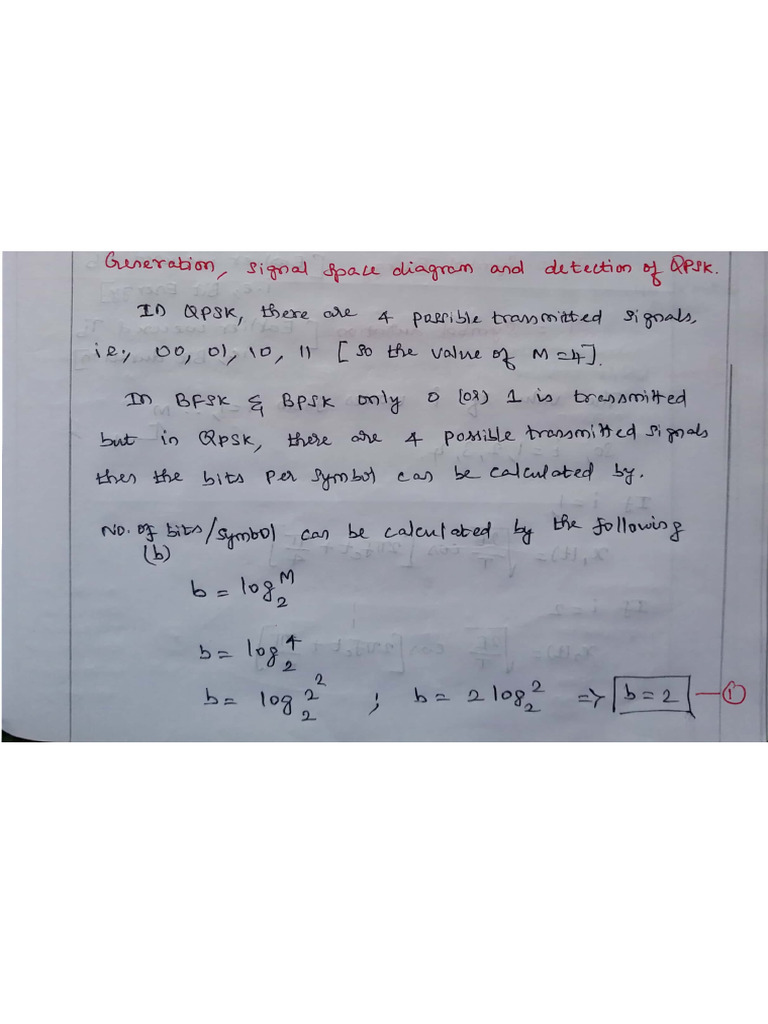 Generation, Signal Space diagram and detection of QPSK.
In QPSK, there are 4 possible transmitted signals,
i.e., 00, 01, 10, 11 [so the value of M=4].
In BFSK & BPSK only 0 (or) 1 is transmitted
but in QPSK, there are 4 possible transmitted signals
then the bits per symbol can be calculated by.
No. of bits/symbol can be calculated by the following
(b)
b = log₂ᴹ
b = log₂⁴
b = log₂2² ; b = 2 log₂² => b = 2 — ①